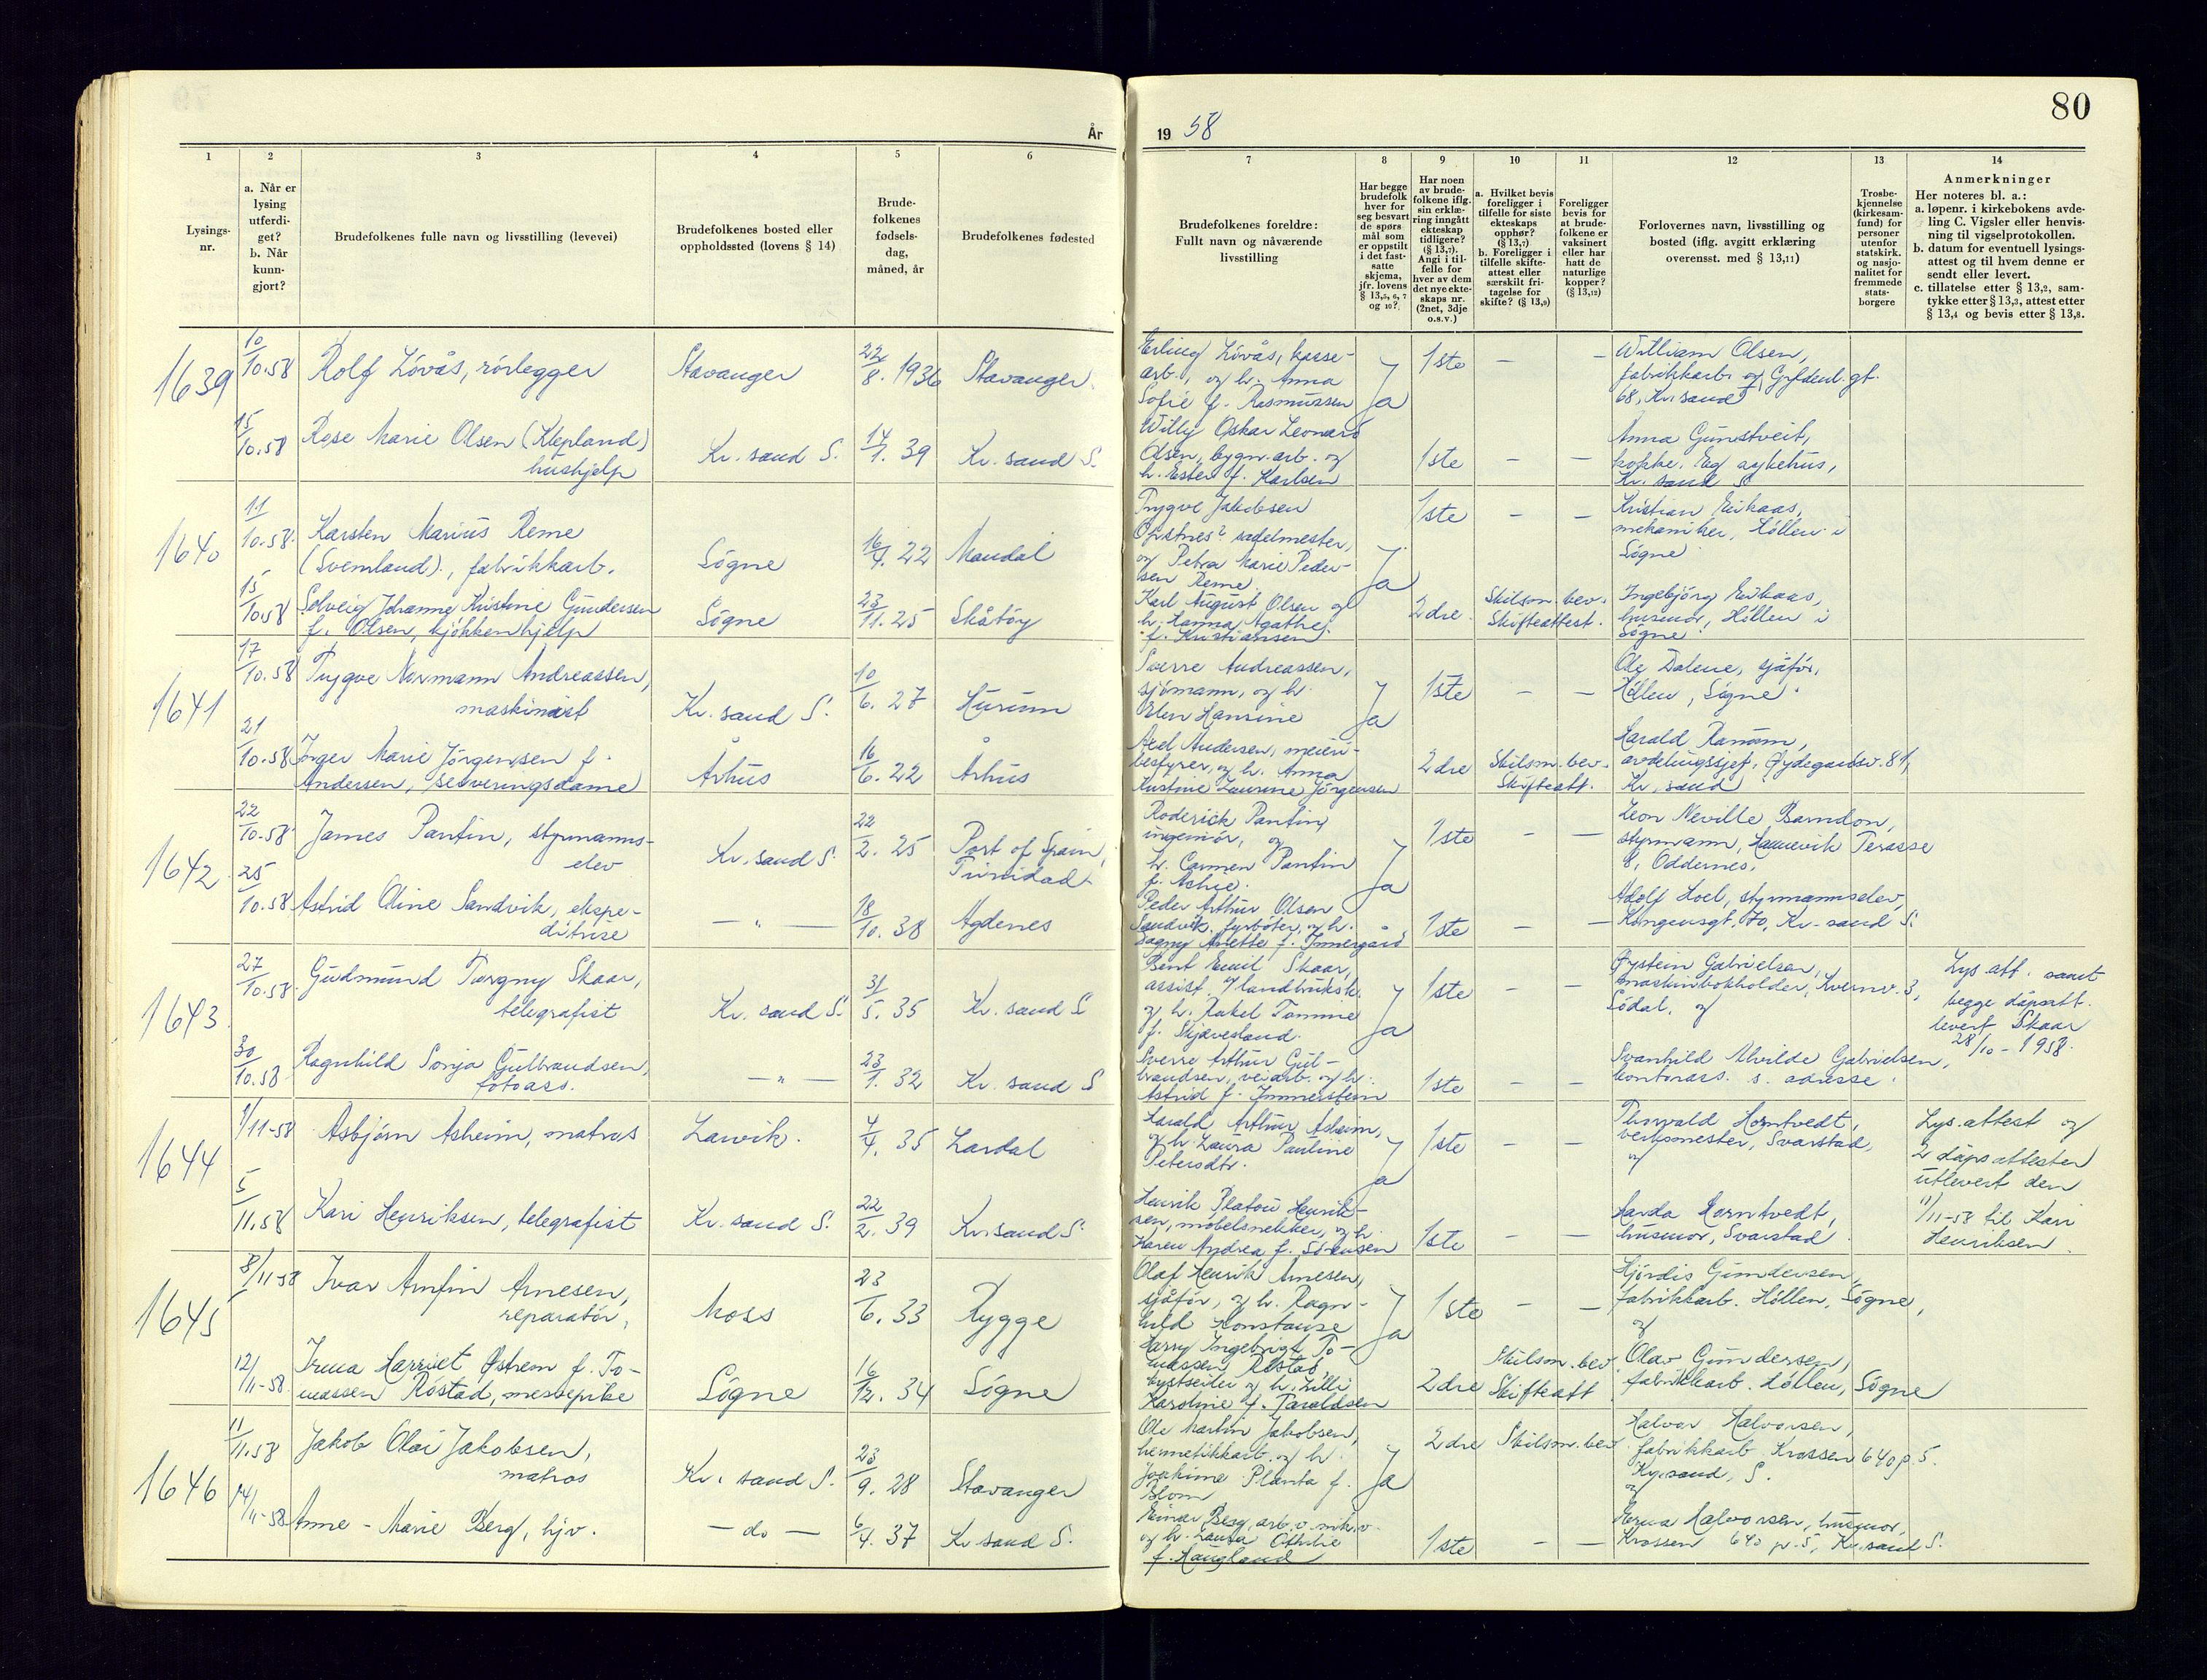 80
År
19 58
1
2
3
4
5
6
7
8
9
10
11
12
13
14
Lysings-
nr.
a. Når er
lysing
utferdi-
get?
b. Når
kunn-
gjort?
Brudefolkenes fulle navn og livsstilling (levevei)
Brudefolkenes bosted eller
oppholdssted (lovens § 14)
Brude-
folkenes
fødsels-
dag,
måned, år
Brudefolkenes fødested
Brudefolkenes foreldre:
Fullt navn og nåværende
livsstilling
Har begge
brudefolk
hver for
seg besvart
de spørs
mål som
er oppstilt
i det fast-
satte
skjema,
jfr. lovens
§ 13,5, 6, 7
og 10?
Har noen
av brude-
folkene iflg.
sin erklæ-
ring inngått
ekteskap
tidligere?
(§ 13,7).
Angi i til-
felle for
hver av dem
det nye ekte-
skaps nr.
(2net, 3dje
o.s.v.)
a. Hvilket bevis
foreligger i
tilfelle for siste
ekteskaps
opphør?
(§ 13,7)
b. Foreligger i
tilfelle skifte-
attest eller
særskilt fri-
tagelse for
skifte? (§ 13,9)
Foreligger
bevis for
at brude-
folkene er
vaksinert
eller har
hatt de
naturlige
kopper?
(§ 13,12)
Forlovernes navn, livsstilling og
bosted (iflg. avgitt erklæring
overensst. med § 13,11)
Trosbe-
kjennelse
(kirkesam-
fund) for
personer
utenfor
statskirk.
og nasjo-
nalitet for
fremmede
stats-
borgere
Anmerkninger
Her noteres bl. a.:
a. løpenr. i kirkebokens avde-
ling C. Vigsler eller henvis-
ning til vigselprotokollen.
b. datum for eventuell lysings-
attest og til hvem denne er
sendt eller levert.
c. tillatelse etter § 13,2, sam-
tykke etter § 13,3, attest etter
§ 13,4 og bevis etter § 13,8.
1639
10/10.58
Rolf Lövås, rörlegger
Stavanger
22/8. 1936
Stavanger.
Erling Lövås, kasse-
arb., og h. Anna
Sofie f. Rasmussen
Ja
1ste
–
–
William Olsen,
fabrikkarb. og Gyldenl. gt.
68, Kr. sand
15/10.58
Rose Marie Olsen (Klepland)
hushjelp
Kr. sand S.
14/1. 39
Kr. sand S.
Willy Oskar Leonard
Olsen, bygn. arb. og
h. Ester f. Karlsen
1ste
–
–
Anna Gunstveit,
kokke. Eg sykehus,
Kr. sand S
1640
11/10.58
Karsten Marius Reme
(Svemland)., fabrikkarb.
Sögne
16/4. 22
Mandal
Trygve Jakobsen
Ofstnes? sadelmester,
og Petra Marie Peder-
sen Reme.
Ja
1ste
–
–
Kristian Eikaas,
mekaniker, Höllen i
Sögne
15/10.58
Solveig Johanne Kristine Gundersen
f. Olsen, kjökkenhjelp
Sögne
23/11. 25
Skåtöy
Karl August Olsen og
h. Hanna Agathe
f. Kristiansen
2dre
Skilsm. bev.
Skifteattest.
Ingebjörg Eikaas,
husmor, Höllen i
Sögne
1641
17/10.58
Trygve Normann Andreassen,
maskinist
Kr. sand S.
10/6. 27
Hurum
Sverre Andreassen,
sjömann, og h.
Elen Hansine
Ja
1ste
–
–
Ole Dalene, sjåför,
Höllen, Sögne
21/10.58
Inger Marie Jörgensen f.
Andersen, serveringsdame
Århus
16/6. 22
Århus
Axel Andersen, meieri-
bestyrer, og h. Anna
Kristine Laurine Jörgensen
2dre
Skilsm. bev.
Skifteatt.
Harald Ramm,
avdelingssjef, Øydegardsv. 81,
Kr. sand
1642
22/10.58
James Pantin, styrmanns-
elev
Kr. sand S.
22/2. 25
Port of Spain,
Trinidad
Roderick Pantin,
ingeniör, og
h. Carmen Pantin
f. Achie.
Ja
1ste
–
–
Leon Neville Barndon,
styrmann, Hannevik Terasse
8, Oddernes.
25/10.58
Astrid Oline Sandvik, ekspe-
ditrise
– " –
18/10. 38
Agdenes
Peder Arthur Olsen
Sandvik, fyrböter, og h.
Dagny Anette f. Innergård
1ste
–
–
Adolf Hoel, styrmannselev,
Kongensgt. 70, Kr. sand S.
1643
27/10.58
Gudmund Torgny Skaar,
telegrafist
Kr. sand S.
31/5. 35
Kr. sand S
Bent Emil Skaar,
assist. v/ landbruksk.
og h. Rakel Tomine
f. Skjævesland.
Ja
1ste
–
–
Øystein Gabrielsen,
maskinbokholder, Kvernv. 3,
Södal, og
Lys. att. samt
begge dåpsatt.
levert Skaar
28/10 - 1958.
30/10.58
Ragnhild Sonja Gulbrandsen,
fotoass.
– " –
23/1. 32
Kr. sand S
Sverre Arthur Gul-
brandsen, veiarb. og h.
Astrid f. Immerstein
1ste
–
–
Svanhild Alvilde Gabrielsen,
kontorass. s. adresse.
1644
1/11-58
Asbjörn Asheim, matros
Larvik.
4/4. 35
Lardal
Harald Arthur Asheim,
og h. Laura Pauline
Petersdtr.
Ja
1ste
–
–
Thorvald Horntvedt,
verksmester, Svarstad,
og
Lys. attest og
2 dåpsattester
utlevert den
11/11-58 til Kari
Henriksen
5/11.58
Kari Henriksen, telegrafist
Kr. sand S.
22/2. 39
Kr. sand S.
Henrik Platou Henrik-
sen, möbelsnekker, og h.
Karen Andrea f. Sörensen
1ste
–
–
Harda Horntvedt,
husmor, Svarstad
1645
8/11-58
Ivar Arnfin Arnesen,
reparatör,
Moss
23/6. 33
Rygge
Olaf Henrik Arnesen,
sjåför, og h. Ragn-
hild Konstanse
Ja
1ste
–
–
Hjördis Gundersen,
fabrikkarb. Höllen, Sögne,
og
12/11-58
Irma Harriet Østrem f. To-
massen Röstad, messepike
Sögne
16/12. 34
Sögne
Harry Ingebrigt To-
massen Röstad
kystseiler og h. Lilli
Karoline f. Taraldsen
2dre
Skilsm. bev.
Skifteatt
Olav Gundersen,
fabrikkarb. Höllen, Sögne
1646
11/11.58
Jakob Olai Jakobsen,
matros
Kr. sand S.
23/9. 28
Stavanger
Ole Martin Jakobsen,
hermetikkarb. og h.
Joakime Planta f.
Blom
Ja
2dre
Skilsm. bev.
Halvor Halvorsen,
fabrikkarb. Krossen 640 p. 5.
Kr. sand, S.
og
14/11-58
Anne-Marie Berg, hjv.
– do –
6/4. 37
Kr sand S.
Einar Berg, arb. v. nik. v.
og h. Laura Othilie
f. Haugland
1ste
–
–
Erna Halvorsen, husmor,
Krossen 640 p. 5, Kr. sand S.